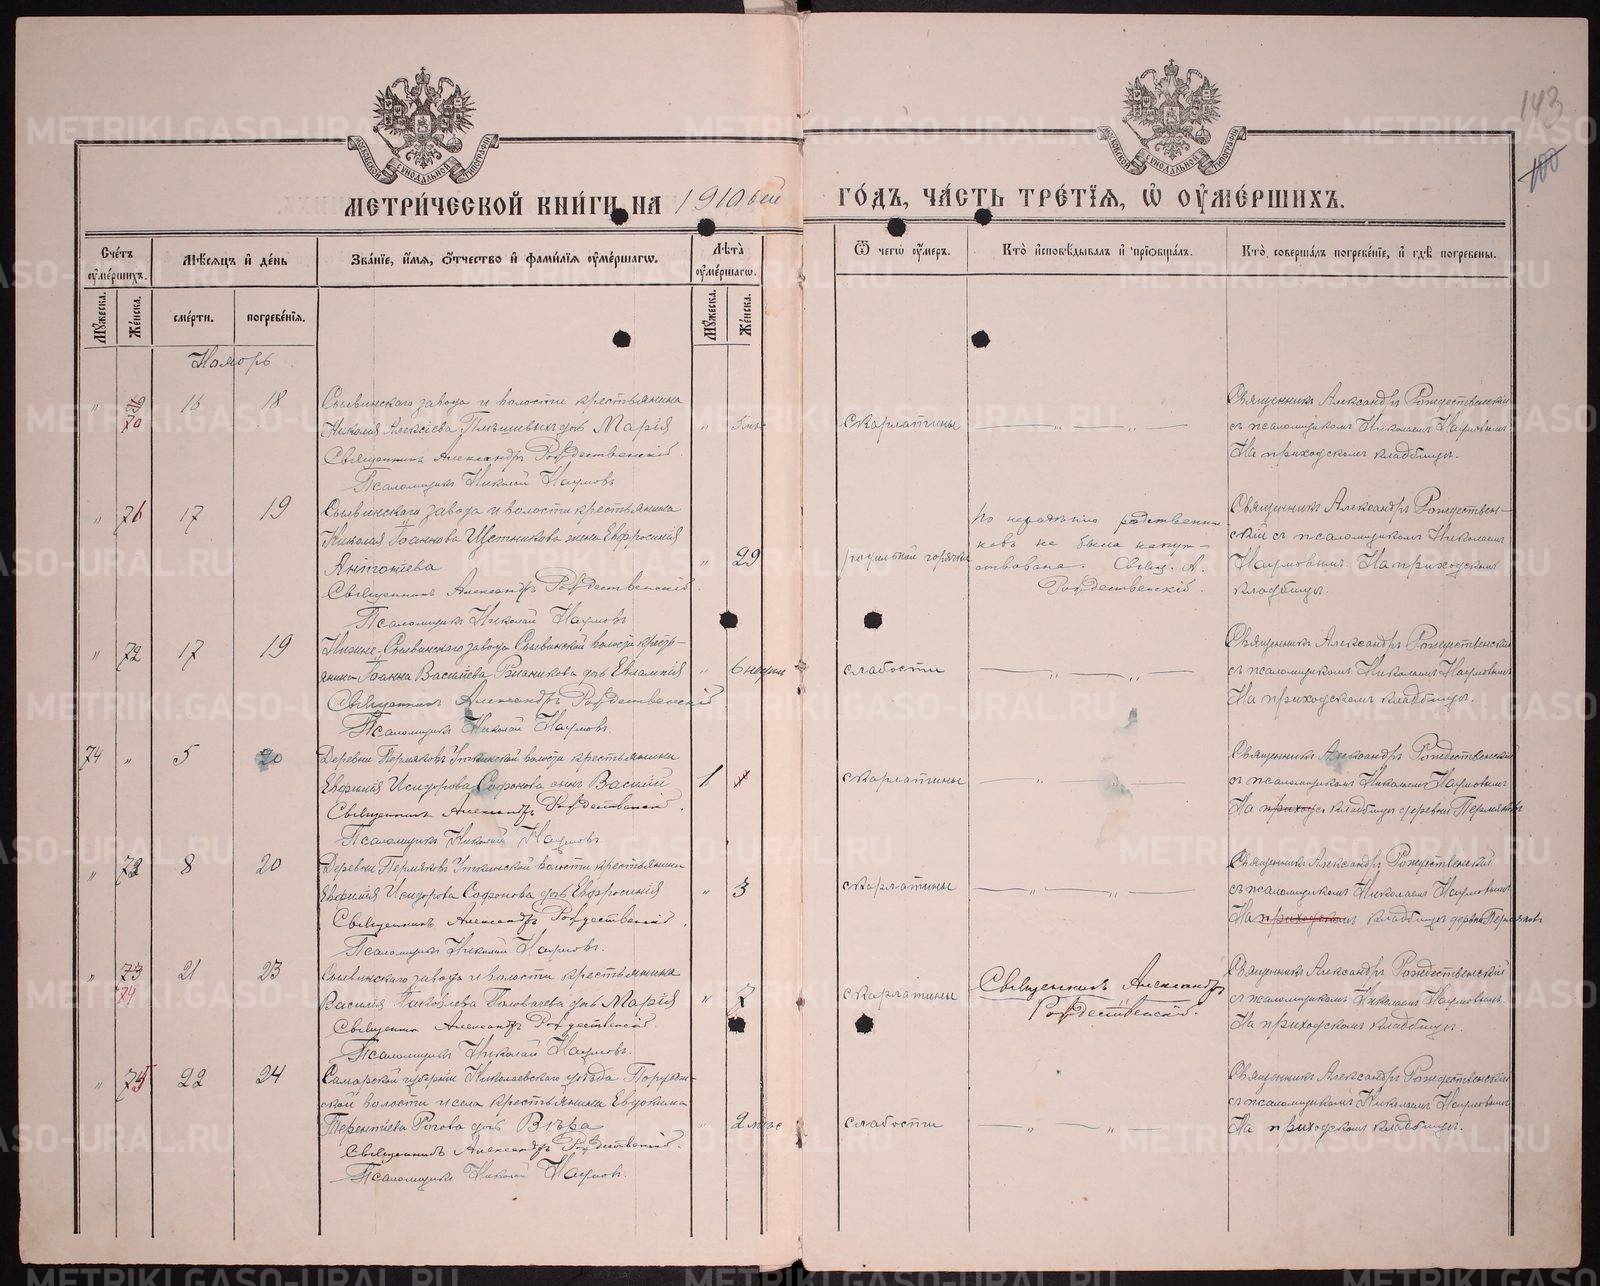 143
100
МОСКОВСКОЙ СѴНОДАЛЬНОЙ ТИПОГРАФІИ
МОСКОВСКОЙ СѴНОДАЛЬНОЙ ТИПОГРАФІИ
МЕТРИ́ЧЕСКОЙ КНИ́ГИ НА 1910ый ГО́ДЪ, ЧА́СТЬ ТРЕ́ТЇѦ, Ѡ҆ ОУ҆МЕ́РШИХЪ.
Сче́тъ оу҆ме́ршихъ.
Мѣ́сѧцъ и҆ де́нь
Зва́нїе, и҆́мѧ, ѻ҆́тчество и҆ фами́лїѧ оу҆ме́ршагѡ.
Лѣ́та оу҆ме́ршагѡ.
Ѿ чегѡ̀ оу҆́меръ.
Кто̀ и҆сповѣ́дывалъ и҆ прїѡбща́лъ.
Кто̀ соверша́лъ погребе́нїе, и҆ гдѣ̀ погребе́ны.
Мꙋ́жеска.
Же́нска.
сме́рти.
погребе́нїѧ.
Мꙋ́жеска.
Же́нска.
Ноябрь
" 70 16 18
Сылвинскаго завода и волости крестьянина
Николая Алексѣева Плѣшивыхъ дочь Марія
Священникъ Александръ Рождественскій.
Псаломщикъ Николай Наумовъ
" скарлатины
Священникъ Александръ Рождественскій
съ псаломщикомъ Николаемъ Наумовымъ
На приходскомъ кладбищѣ.
" 71 17 19
Сылвинскаго завода и волости крестьянина
Николая Іоаннова Щетникова жена Евфросинія
Антоніева
Священникъ Александръ Рождественскій.
Псаломщикъ Николай Наумовъ
" 29
родильной горячки
По нерадѣнію родственни-
ковъ не была напут-
ствована. Свящ. А.
Рождественскій.
Священникъ Александръ Рождествен-
скій съ псаломщикомъ Николаемъ
Наумовымъ. На приходскомъ
кладбищѣ.
" 72 17 19
Нижне-Сылвинскаго завода Сылвинской волости крест-
янина Іоанна Васильева дочь Евлампія
Священникъ Александръ Рождественскій
Псаломщикъ Николай Наумовъ.
" 6 недѣль слабости
Священникъ Александръ Рождественскій
съ псаломщикомъ Николаемъ Наумовымъ
На приходскомъ кладбищѣ.
74 " 5 20
Деревни Пермяковъ Уткинской волости крестьянина
Евфимія Исидорова Софонова сынъ Василій
Священникъ Александръ Рождественскій.
Псаломщикъ Николай Наумовъ
1 скарлатины
Священникъ Александръ Рождественскій
съ псаломщикомъ Николаемъ Наумовымъ
На кладбищѣ деревни Пермяковъ
" 8 20
Деревни Пермяковъ Уткинской волости крестьянина
Евфимія Исидорова Софонова дочь Евфросинія
Священникъ Александръ Рождественскій.
Псаломщикъ Николай Наумовъ.
" 3 скарлатины
Священникъ Александръ Рождественскій
съ псаломщикомъ Николаемъ Наумовымъ
На приходскомъ кладбищѣ деревни Пермяковъ
" 73 21 23
74
Сылвинскаго завода и волости крестьянина
Василія Іаковлева Головачева дочь Марія
Священникъ Александръ Рождественскій.
Псаломщикъ Николай Наумовъ.
" 7 скарлатины
Священникъ Александръ
Рождественскій.
Священникъ Александръ Рождественскій
съ псаломщикомъ Николаемъ Наумовымъ.
На приходскомъ кладбищѣ.
" 75 22 24
Самарской губерніи Николаевскаго уѣзда
ской волости и села крестьянина Евдокима
Терентіева Рогова дочь Вѣра
Священникъ Александръ Рождественскій.
Псаломщикъ Николай Наумовъ.
" 2 мѣс слабости
Священникъ Александръ Рождественскій
съ псаломщикомъ Николаемъ Наумовымъ
На приходскомъ кладбищѣ.
METRIKI.GASO-URAL.RU